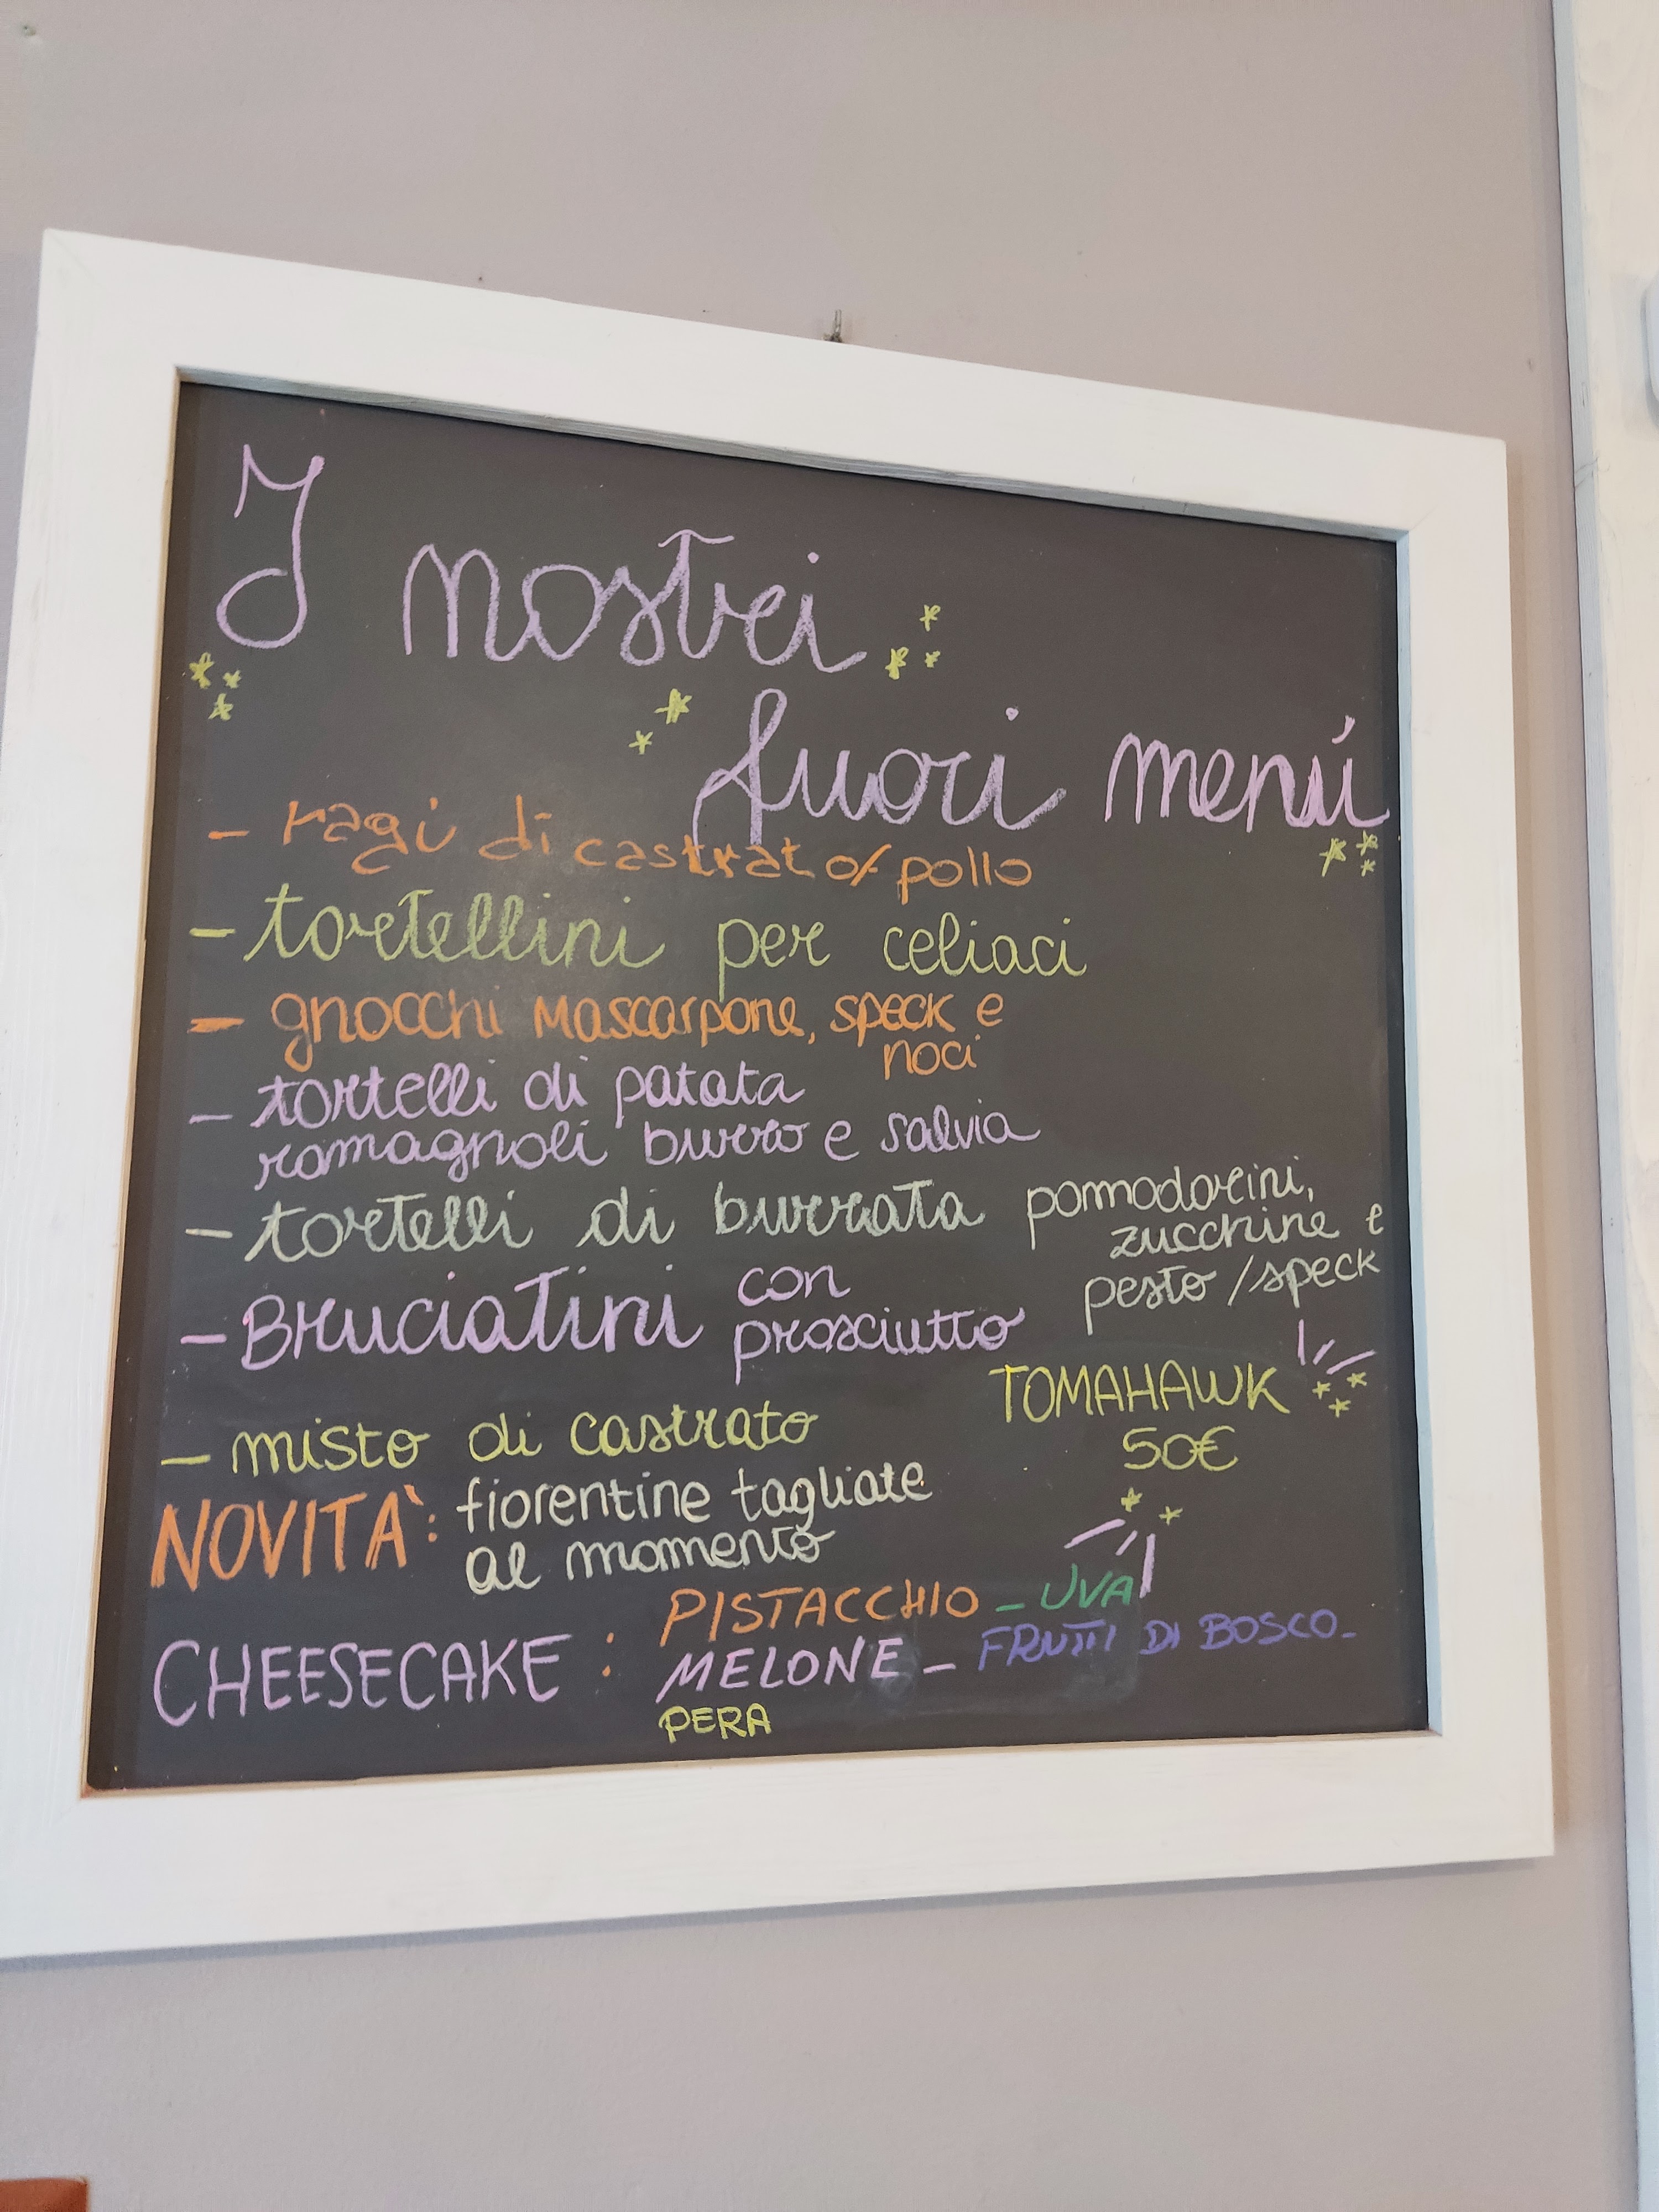 I nostri
fuori menú
- ragù di castrato/pollo
- tortellini per celiaci
- gnocchi mascarpone, speck e
noci
- tortelli di patata
romagnoli burro e salvia
- tortelli di burrata pomodorini,
zucchine e
pesto/speck
- Bruciatini con
prosciutto
TOMAHAWK
50€
- misto di castrato
NOVITÀ: fiorentine tagliate
al momento
CHEESECAKE: PISTACCHIO - UVA
MELONE - FRUTTI DI BOSCO -
PERA